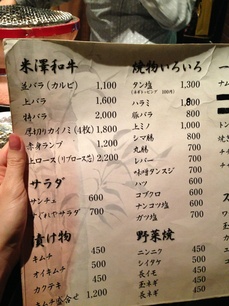 米澤和牛
並バラ(カルビ) 1,100
上バラ 1,600
特バラ 2,000
厚切りカイノミ(4枚) 1,800
赤身ランプ 1,200
上ロース(リブロース芯) 2,200
サラダ
サンチュ 600
サラダ 700
漬け物
キムチ 450
オイキムチ 500
カクテキ 450
キムチ盛合せ 1,200
焼物いろいろ
タン塩 1,300
ハラミ 1,800
豚バラ 800
上ミノ 1,000
シマ腸 800
丸腸 700
レバー 700
味噌ダンスジ 700
ハツ 600
コブクロ 600
ナンコツ塩 600
ガツ塩 600
野菜焼
ニンニク 450
シイタケ 500
長イモ 450
玉ネギ 450
長ネギ 450